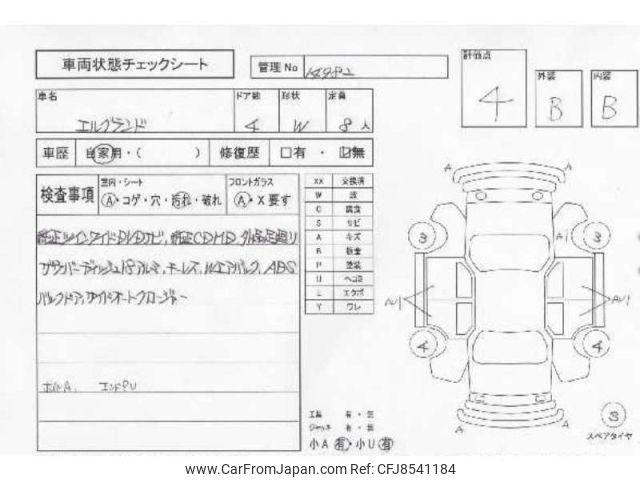 車両状態チェックシート
管理No 14982
計価点
4
外装
B
内装
B
車名 ドア数 形状 定員
エルグランド 4 W 8人
車歴 自家用・( ) 修復歴 □有・☑無
検査事項 室内・シート フロントガラス
A・コゲ・穴・汚れ・破れ A・X要す
純正ツインワイドDVDナビ、純正CDMD、外品足廻り
ディッシュ18アルミ、キーレス、Wエアバック、ABS
バックドア、サイドオートクロージャー
XX 交換済
W 波
C 腐食
S サビ
A キズ
B 板金
P 塗装
U ヘコミ
L エクボ
Y ワレ
A A
3 A1 3
AU1 AU1
4 4
A A
3
スペアタイヤ
エンドPU
工具 有・無
ジャッキ 有・無
小A有・小U有
www.CarFromJapan.com - Ref#CFJ8541184